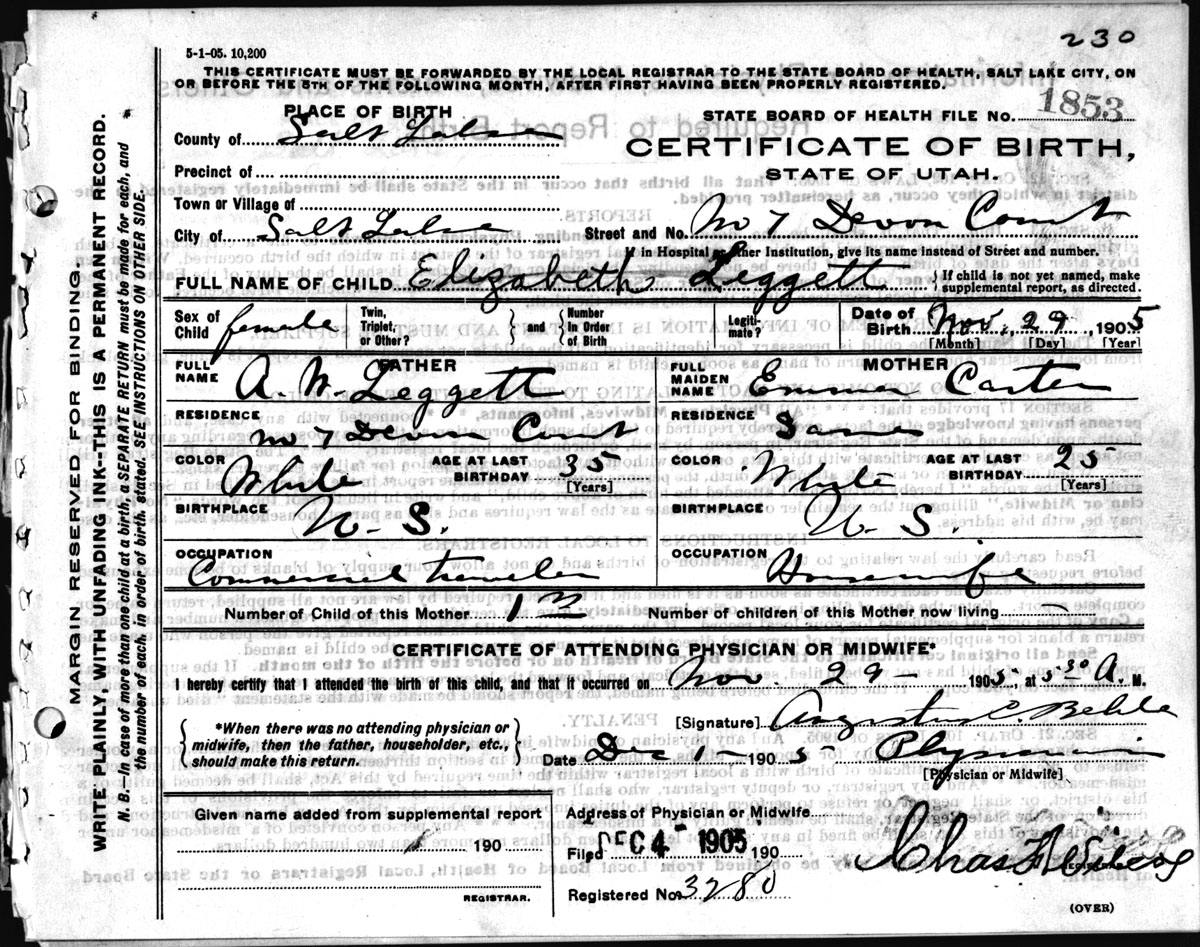 230
5-1-05. 10,200
THIS CERTIFICATE MUST BE FORWARDED BY THE LOCAL REGISTRAR TO THE STATE BOARD OF HEALTH, SALT LAKE CITY, ON
OR BEFORE THE 5TH OF THE FOLLOWING MONTH, AFTER FIRST HAVING BEEN PROPERLY REGISTERED.
PLACE OF BIRTH
STATE BOARD OF HEALTH FILE No. 1853
County of Salt Lake
CERTIFICATE OF BIRTH,
Precinct of
STATE OF UTAH.
Town or Village of
City of Salt Lake Street and No. No 7 Devon Court
If in Hospital or other Institution, give its name instead of Street and number.
FULL NAME OF CHILD Elizabeth Leggett { If child is not yet named, make supplemental report, as directed.
Sex of Child female Twin, Triplet, or Other? { and } Number In Order of Birth Legiti-mate? Date of Birth Nov. 29, 1905
[Month] [Day] [Year]
FATHER MOTHER
FULL NAME A. W. Leggett FULL MAIDEN NAME Emma Carter
RESIDENCE No 7 Devon Court RESIDENCE Same
COLOR White AGE AT LAST BIRTHDAY 35 [Years] COLOR White AGE AT LAST BIRTHDAY 25 [Years]
BIRTHPLACE U. S. BIRTHPLACE U. S.
OCCUPATION Commercial traveler OCCUPATION Housewife
Number of Child of this Mother 1 Number of children of this Mother now living —
CERTIFICATE OF ATTENDING PHYSICIAN OR MIDWIFE*
I hereby certify that I attended the birth of this child, and that it occurred on Nov 29 — 1905, at 5:30 A. M.
{ *When there was no attending physician or midwife, then the father, householder, etc., should make this return. }
[Signature] Augustus C. Behle
Date Dec 1 — 1905 Physician
[Physician or Midwife]
Given name added from supplemental report
Address of Physician or Midwife
190
Filed DEC 4 - 1905 190
REGISTRAR.
Registered No. 3280
(OVER)
MARGIN RESERVED FOR BINDING.
WRITE PLAINLY, WITH UNFADING INK--THIS IS A PERMANENT RECORD.
N. B.—In case of more than one child at a birth, a SEPARATE RETURN must be made for each, and
the number of each, in order of birth, stated. SEE INSTRUCTIONS ON OTHER SIDE.